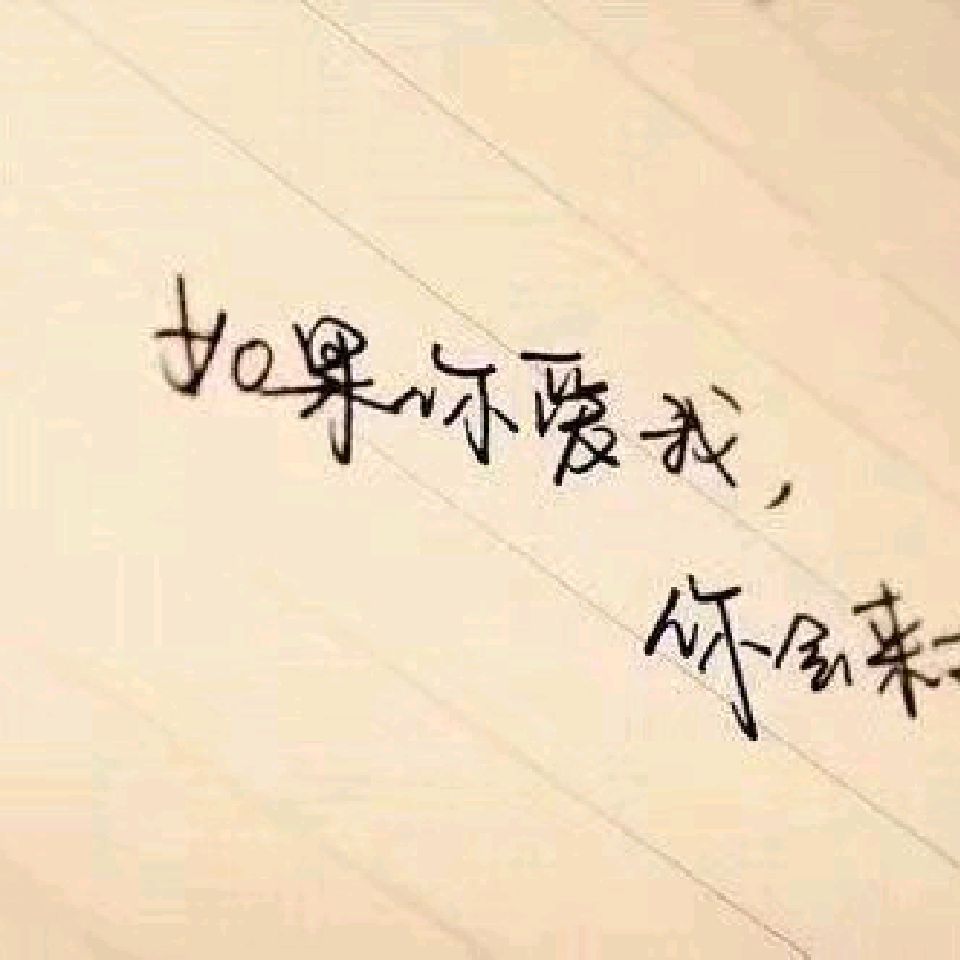 如果你爱我，
你会来